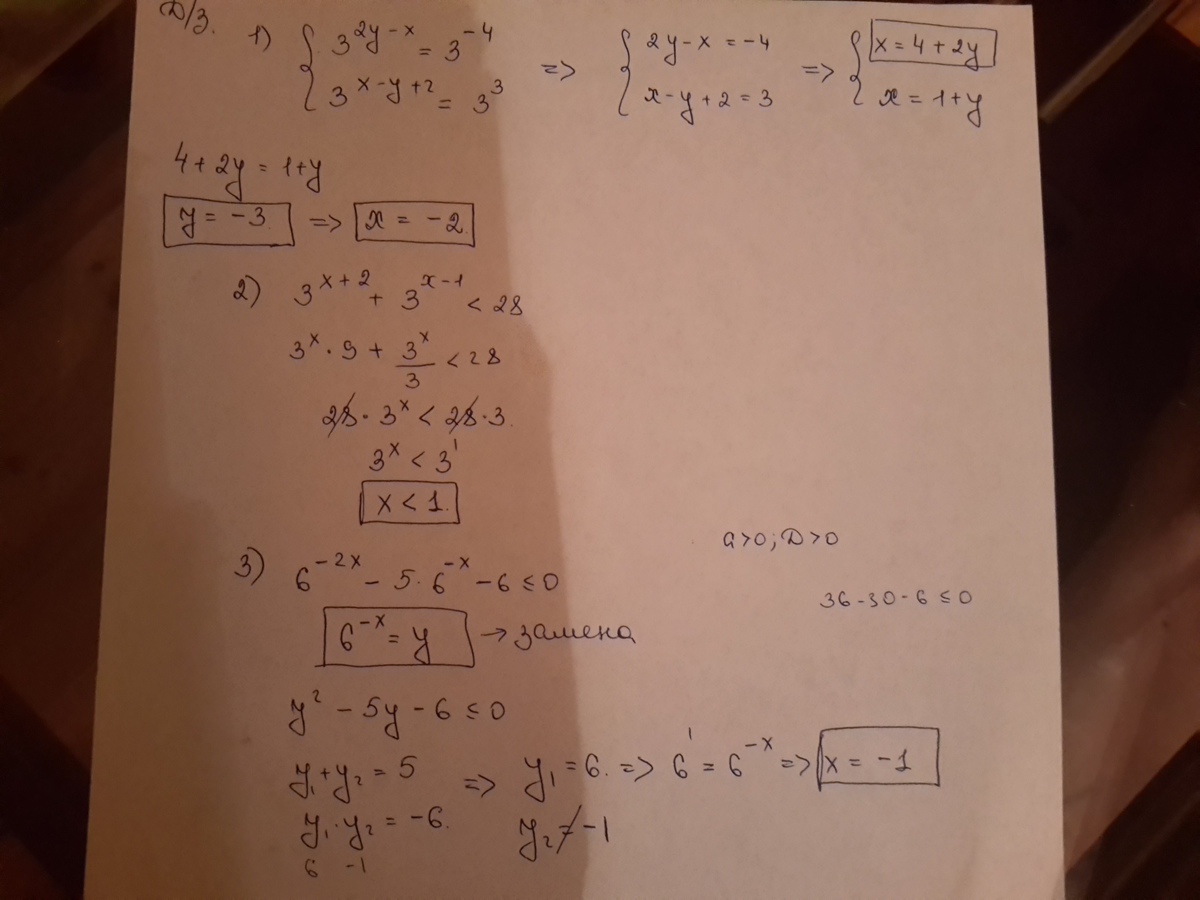 Д/З.
1) { 3^(2y-x) = 3^(-4) => { 2y-x = -4 => { x = 4+2y
3^(x-y+2) = 3^3 x-y+2 = 3 x = 1+y
4+2y = 1+y
y = -3. => x = -2.
2) 3^(x+2) + 3^(x-1) < 28
3^x · 9 + 3^x/3 < 28
28 · 3^x < 28 · 3.
3^x < 3^1
x < 1.
a>0; D>0
3) 6^(-2x) - 5·6^(-x) - 6 ≤ 0
36-30-6 ≤ 0
6^(-x) = y → замена
y² - 5y - 6 ≤ 0
y₁+y₂ = 5 => y₁ = 6. => 6^1 = 6^(-x) => x = -1
y₁·y₂ = -6. y₂ ≠ -1
6 -1